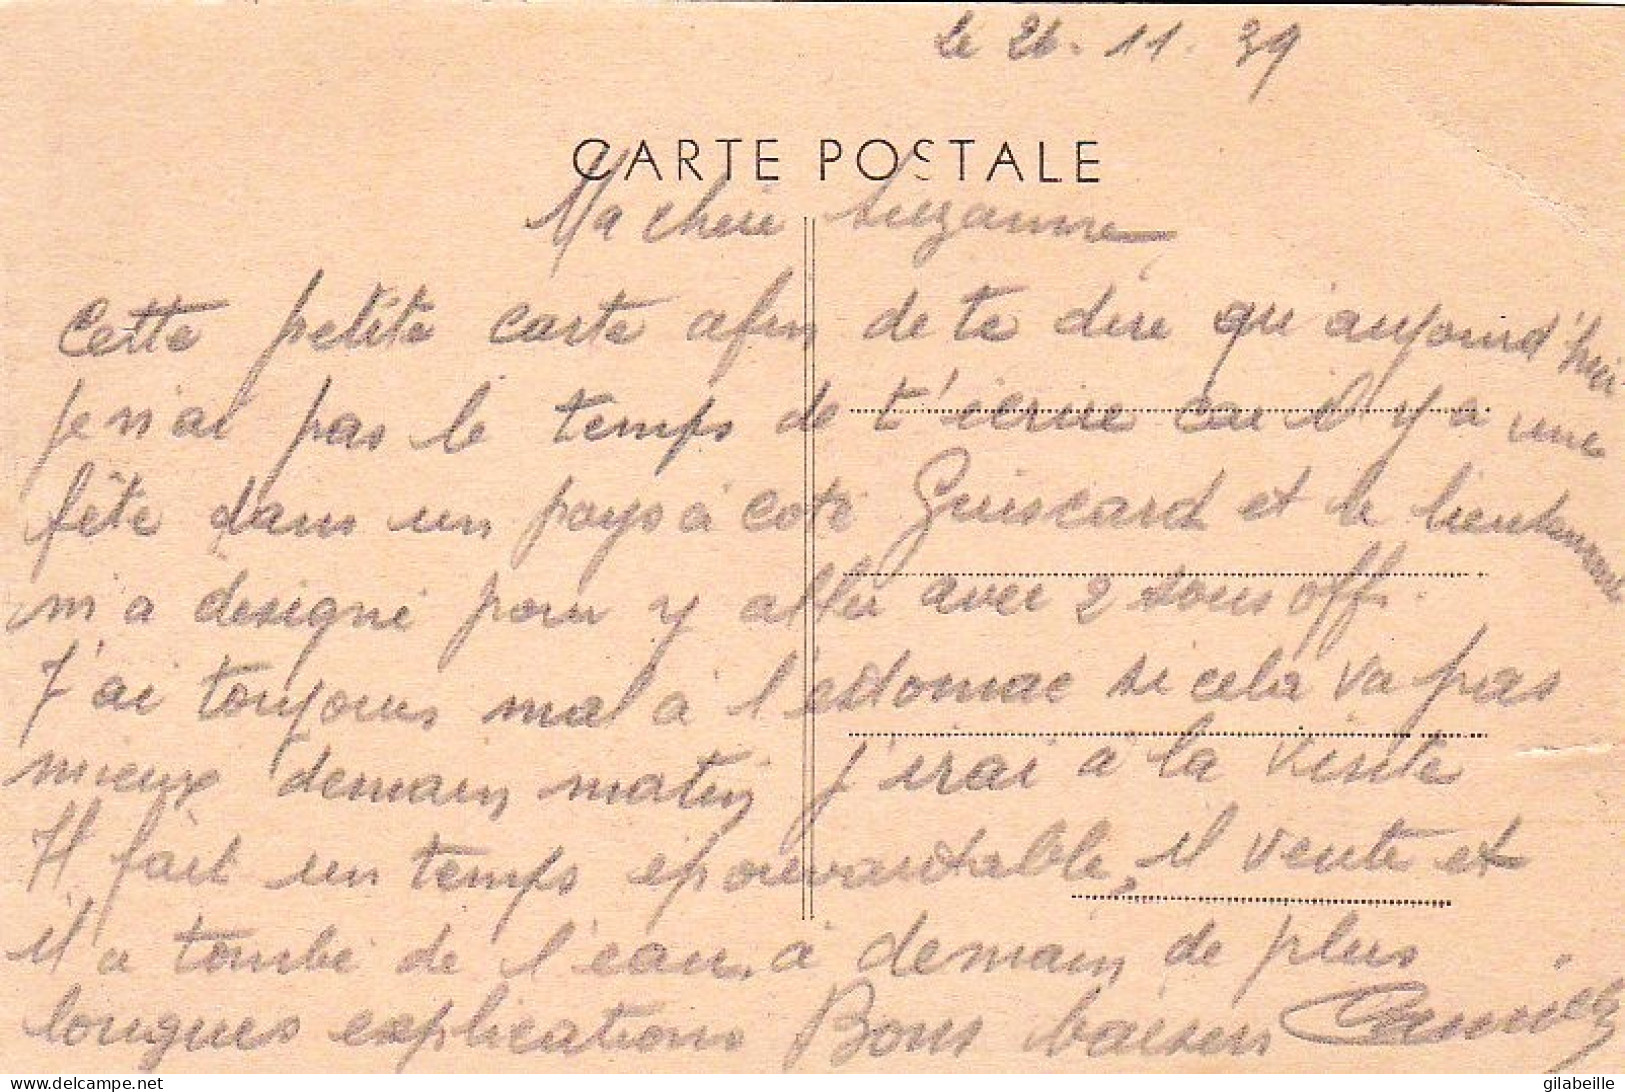 le 26.11.39
CARTE POSTALE
Ma chère Suzanne,
Cette petite carte afin de te dire qu'aujourd'hui
je n'ai pas le temps de t'écrire car il y a une
fête dans un pays à coté Guiscard et le lieutenant
m'a designé pour y aller avec 2 sous off.
J'ai toujours mal à l'estomac si cela va pas
mieux demain matin j'irai à la visite
Il fait un temps épouvantable, il vente et
il a tombé de l'eau, à demain de plus
longues explications Bons baisers Camille
delcampe.net
gilabeille